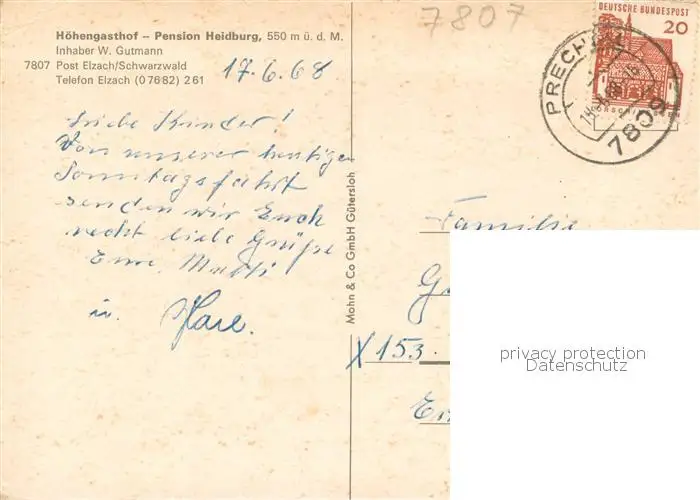 Höhengasthof – Pension Heidburg, 550 m ü. d. M.
Inhaber W. Gutmann
7807 Post Elzach/Schwarzwald
Telefon Elzach (0 76 82) 2 61
17.6.68
Liebe Kinder!
Von unserer heutigen
Sonntagsfahrt
senden wir Euch
recht liebe Grüße
Eure Mutti
u.
Mohn & Co GmbH Gütersloh
7807
DEUTSCHE BUNDESPOST
20
PRECH
7809
Familie
X 153.
privacy protection
Datenschutz